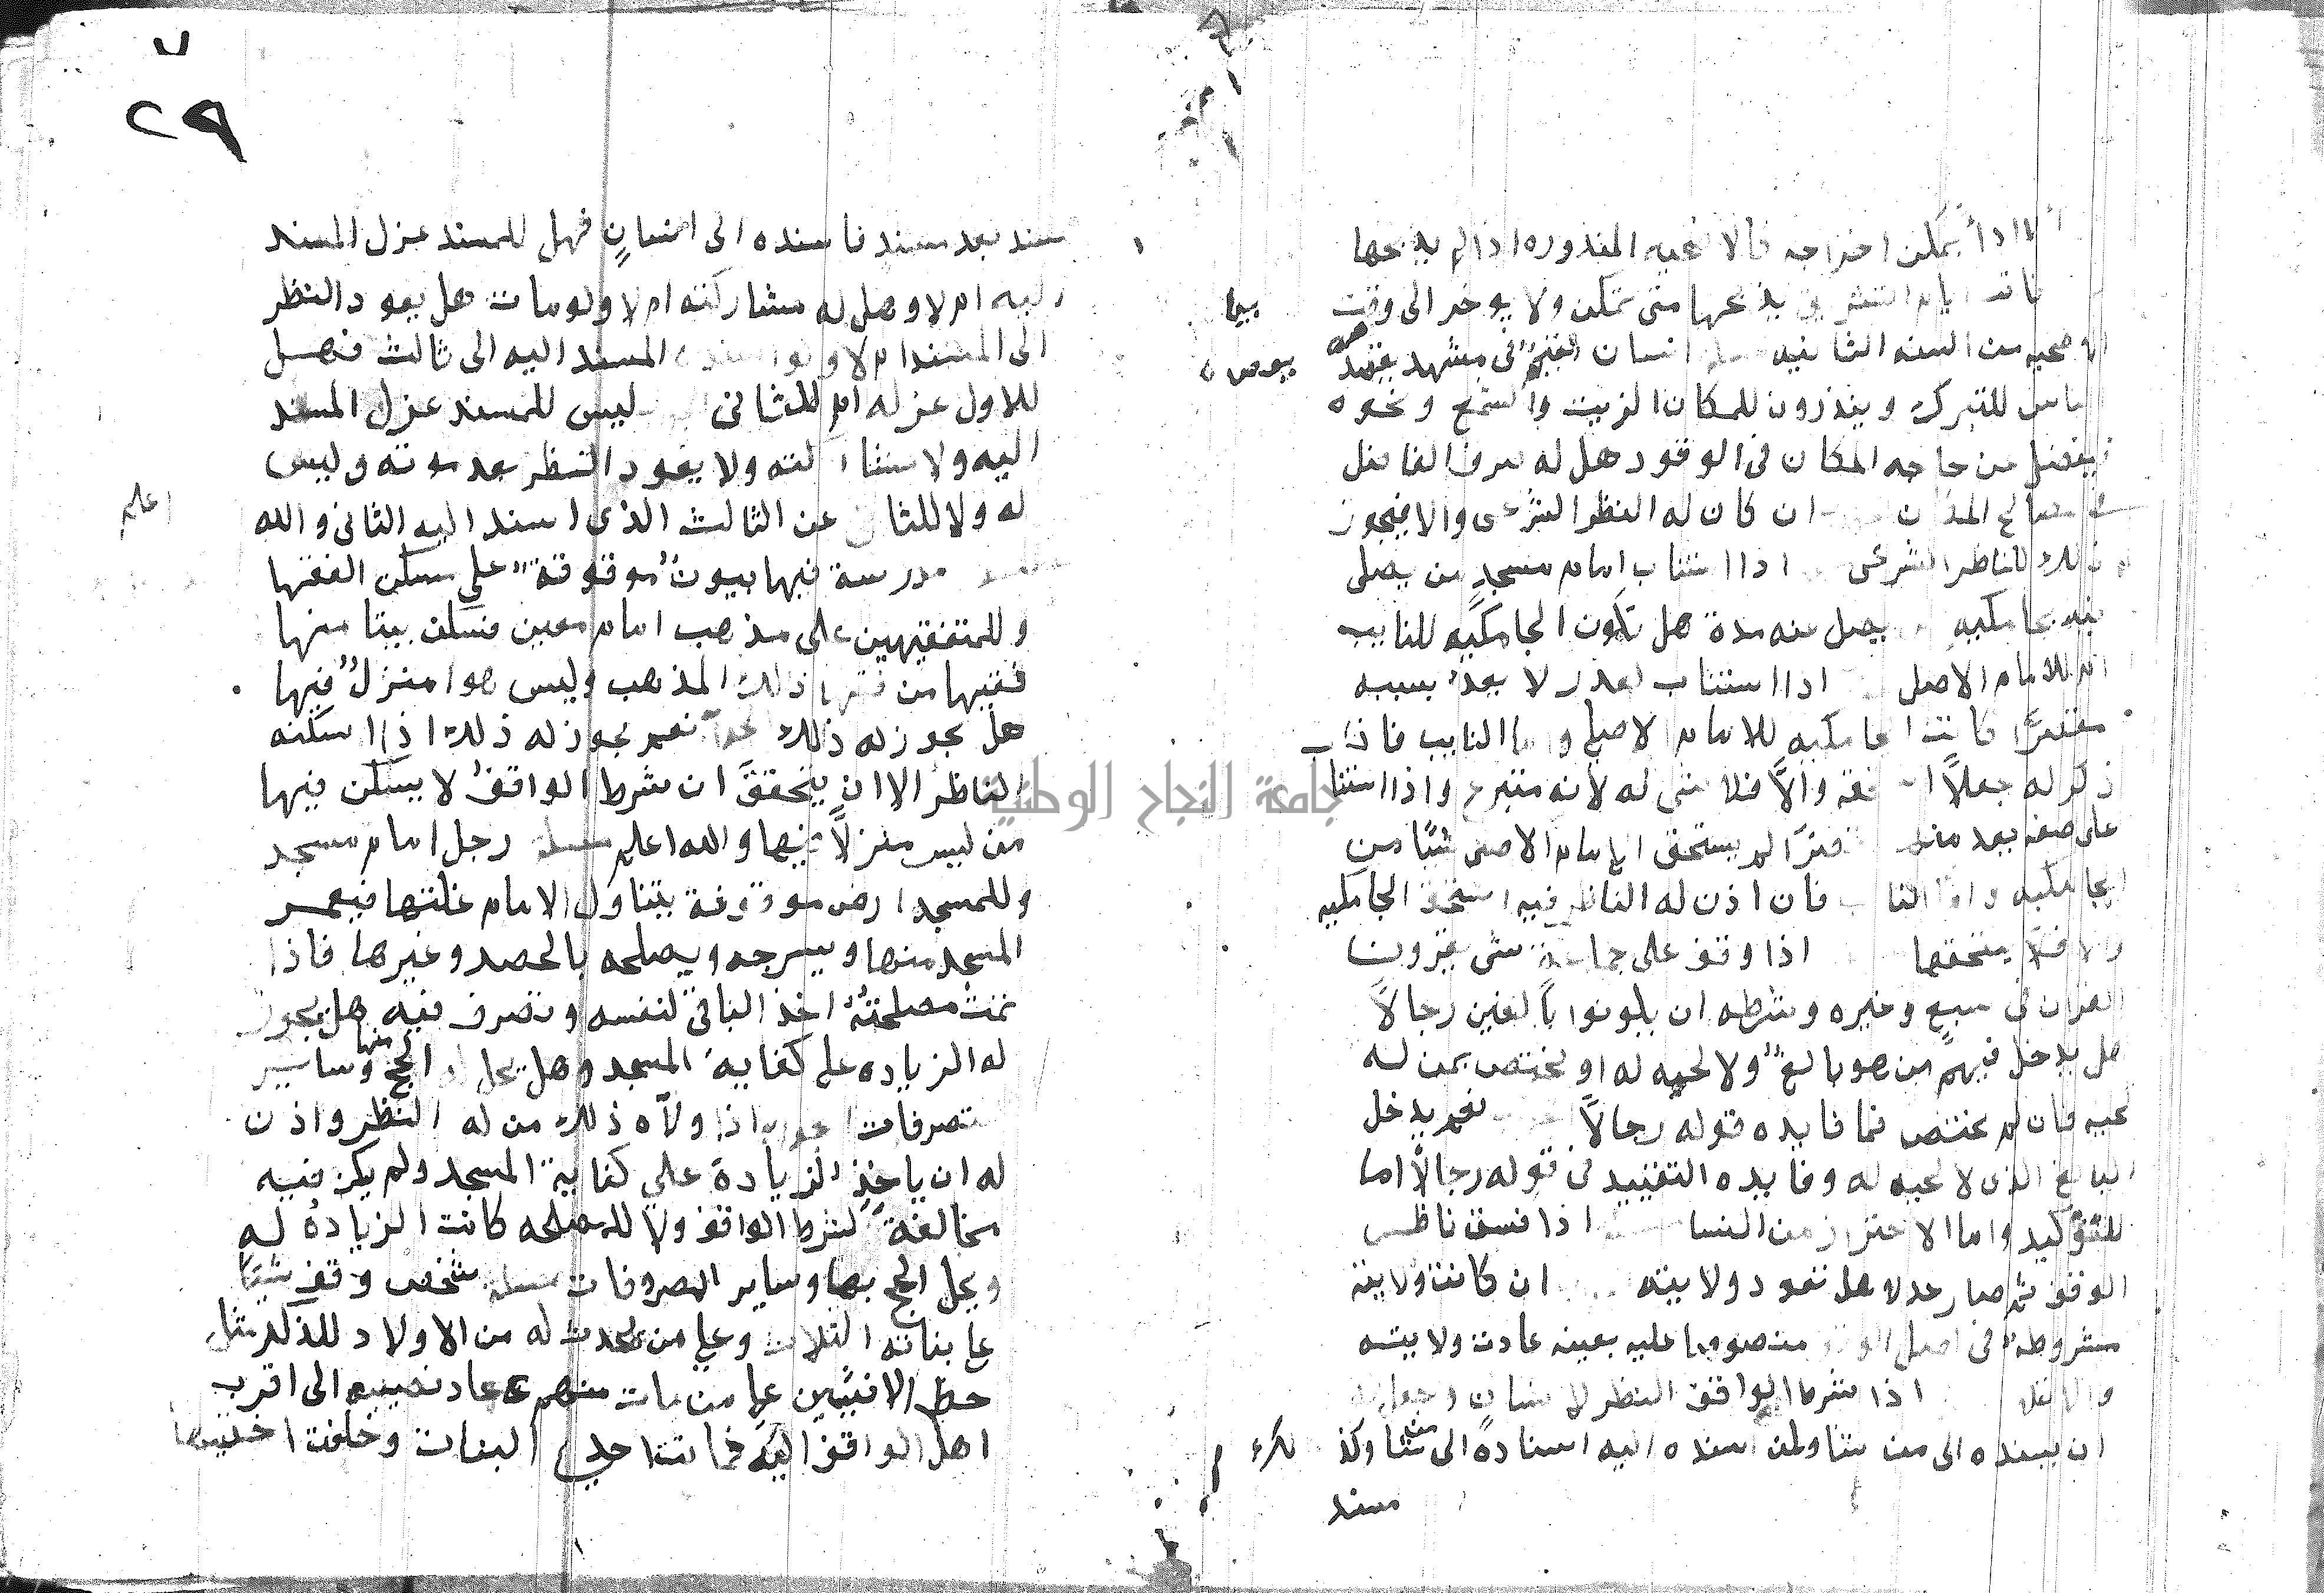 اذا أيمكن اخراجه كالاضحيه المنذوره اذا لم يذبحها
ايام التشريق يذبحها متى تمكن ولا يوخر الى وقت
من السنه الثانيه انسان في مشهد يقصده
الناس للتبرك وينذرون للمكان الزيت والشمع ونحوه
فيفضل من حاجه المكان في الوقود هل له صرف الفاضل
في مصالح المكان ان كان له النظر الشرعى والا فيجوز
ذلك للناظر الشرعى اذا استناب امام مسجد من يصلى
فيه بجامكيه يصل عنه مدة هل تكون الجامكيه للنايب
ام للامام الاصل اذا استناب لعذر لا يعد بسببه
مقصرًا كانت الجامكيه للامام الاصلي واما النايب فان
ذكر له جعلاً استحقه والاَّ فلا شى له لانه متبرع واذا استناب
على صفه يعد مقصرًا لم يستحق الامام الاصلى شيًا من
الجامكيه واما النايب فان اذن له الناظر فيه استحق الجامكيه
والا فلا يستحقها اذا وقف على جماعة شى يقرون
القران في سبع وغيره وشرطه ان يكونوا بالغين رجالاً
هل يدخل فيهم من هو بالغ ولا لحيه له او يختص بمن له
لحيه فان لم يختص فما فايده قوله رجالاً نعم يدخل
البالغ الذى لا لحيه له وفايده التقييد في قوله رجالاً اما
للتوكيد واما الاحتراز من النسا اذا فسق ناظر
الوقف ثم صار عدلا هل تعود ولايته ان كانت ولايته
مشروطة في اصل الوقف منصوصا عليه بعينه عادت ولايته
والا فلا اذا شرط الواقف النظر لانسان وجعل له
ان يسنده الى من شا ولمن اسنده اليه اسنادهُ الى من شا وكذ
مسند
٢٩
مسند بعد مسند فاسنده الى انسانٍ فهل للمسند عزل المسند
اليه ام لا وهل له مشاركته ام لا ولو مات هل يعود النظر
الى المسند ام لا ولو اسنده المسند اليه الى ثالث فهل
للاول عزله ام للثانى ليس للمسند عزل المسند
اليه ولا مشاركته ولا يعود النظر بعد موته وليس
له ولا للثاني عزل الثالث الذى اسند اليه الثانى والله
اعلم
مدرسة فيها بيوت موقوفة على سكن الفقها
وللمتفقيهين على مذهب امام معين فسكن بيتا منها
فقيها من فقها ذلك المذهب وليس هو منزلٌ فيها
هل يجوز له ذلك نعم يجوز له ذلك اذا اسكنه
الناظر الا ان يتحقق ان شرط الواقف لا يسكن فيها
من ليس منزلاً فيها والله اعلم مسئلة رجل امام مسجد
وللمسجد ارض موقوفة يتناول الامام غلتها فيعمر
المسجد منها ويسرجه ويصلحه بالحصر وغيرها فاذا
تمت مصلحتهُ اخذ الباقى لنفسه وتصرف فيه هل يجوز
له الزياده على كفاية المسجد وهل يحل له الحج منها وساير
تصرفات اذا ولاّه ذلك من له النظر واذن
له ان ياخذ الزيادة على كفاية المسجد ولم يكن فيه
مخالفة لشرط الواقف ولا للمصلحه كانت الزيادهُ له
ويحل الحج بها وساير المصروفات مسئلة شخص وقف شيًا
على بناته الثلاث وعلى من يحدث له من الاولاد للذكر مثل
حظ الانثيين على من مات منهم عاد نصيبه الى اقرب
اهل الواقف اليه فماتت احدى البنات وخلفت اختيها
جامعة النجاح الوطنية